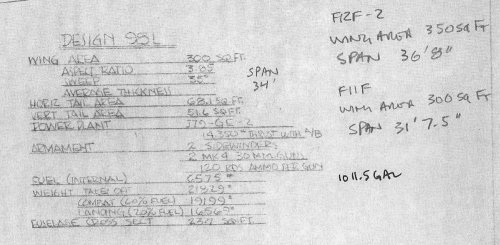 DESIGN 98L
WING AREA 300 SQ FT
ASPECT RATIO 3.85
SWEEP 35°
AVERAGE THICKNESS
SPAN
34'
HORIZ TAIL AREA 68.1 SQ FT
VERT TAIL AREA 51.6 SQ FT
POWER PLANT J79-GE-2
14350# THRUST WITH A/B
ARMAMENT 2 SIDEWINDERS
2 MK 4 30 MM GUNS
120 RDS AMMO PER GUN
FUEL (INTERNAL) 6575#
WEIGHT TAKE OFF 21829#
COMBAT (60% FUEL) 19199#
LANDING (20% FUEL) 16569#
FUSELAGE CROSS SECT SQ FT
F12F-2
WING AREA 350 SQ FT
SPAN 36'8"
F11F
WING AREA 300 SQ FT
SPAN 31' 7.5"
1011.5 GAL